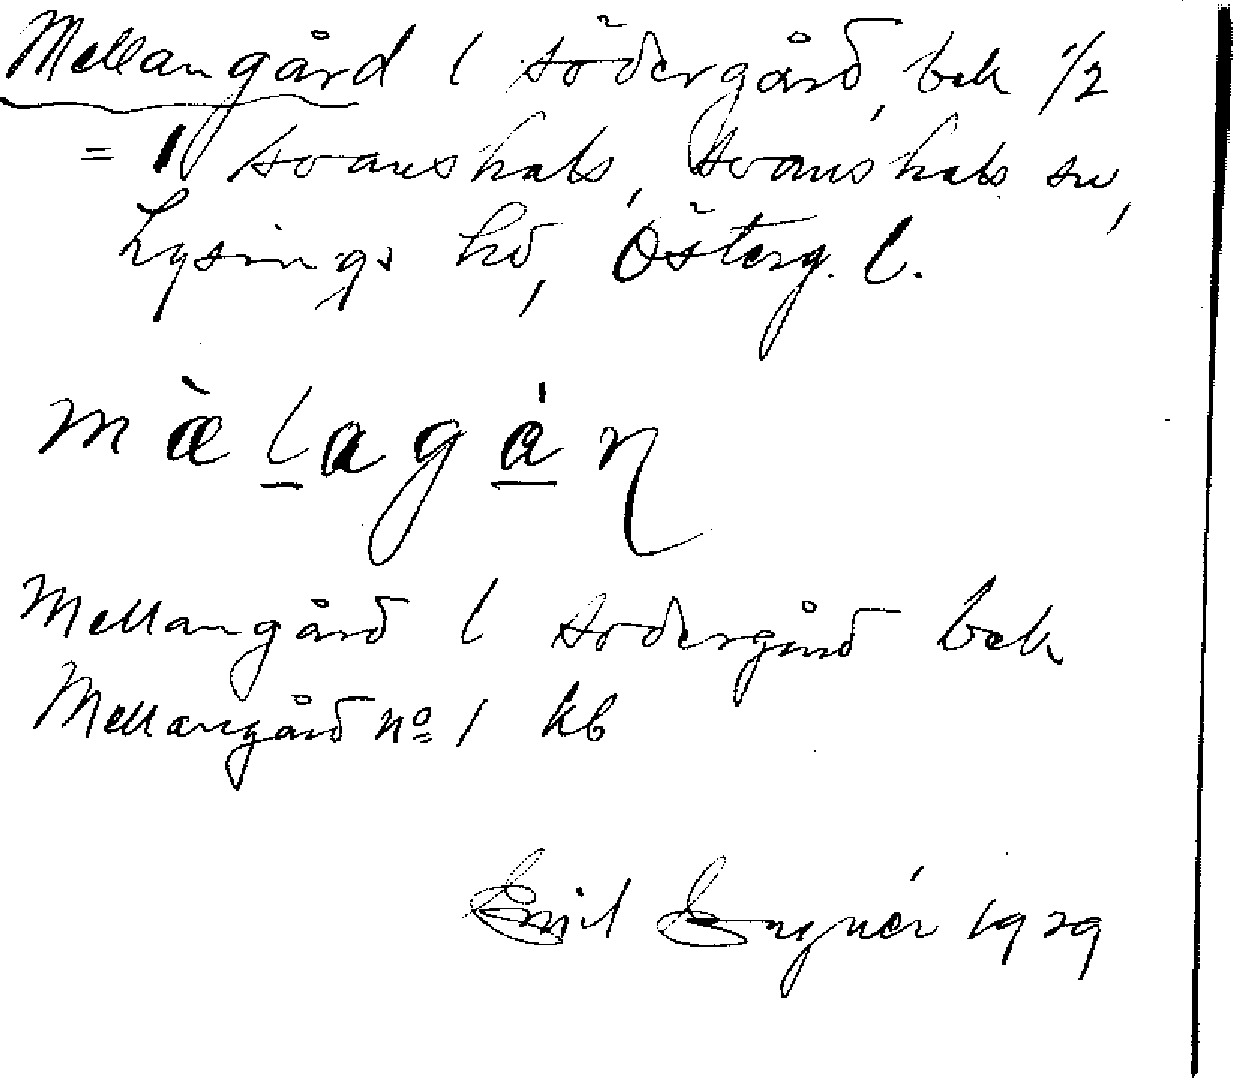 Mellangård l södergård, bek 1/2
= 1 svanshals, svanshals sn,
Lysings hd, Österg. l.
mæ̀lagán
Mellangård l södergård bek
Mellangård nº 1 kb
Emil Engnér 1929